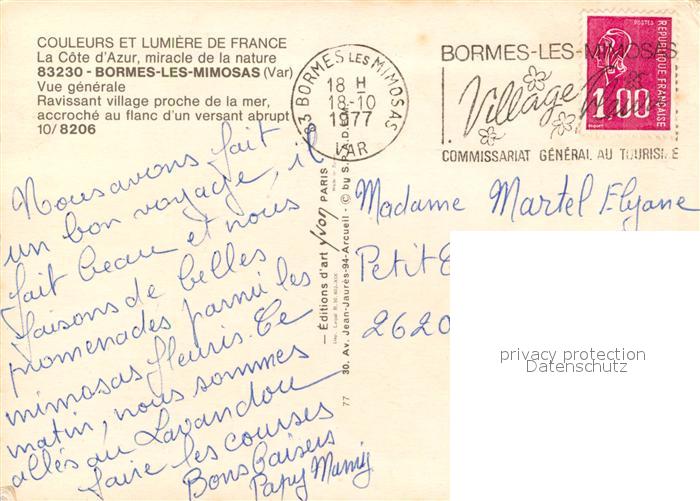 COULEURS ET LUMIÈRE DE FRANCE
La Côte d'Azur, miracle de la nature
83230 - BORMES-LES-MIMOSAS (Var)
Vue générale
Ravissant village proche de la mer,
accroché au flanc d'un versant abrupt
10/8206
83 BORMES LES MIMOSAS
18 H
18-10
1977
VAR
BORMES-LES-MIMOSAS
Village
COMMISSARIAT GÉNÉRAL AU TOURISME
POSTES
REPUBLIQUE FRANÇAISE
1,00
Nous avons fait
un bon voyage, il
fait beau et nous
faisons de belles
promenades parmi les
mimosas fleuris. Ce
matin, nous sommes
allés au Lavandou
faire les courses
Bons baisers
Papy Mamy
— Éditions d'art yvon PARIS
30, Av. Jean-Jaurès-94-Arcueil - © by S.P.A.D.E.M.
77
Madame Martel Elyane
Petit
2620
privacy protection
Datenschutz